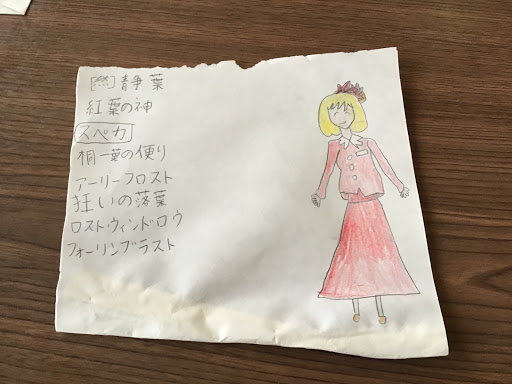 静葉
紅葉の神
スペカ
桐一葉の便り
アーリーフロスト
狂いの落葉
ロストウィンドロウ
フォーリンブラスト